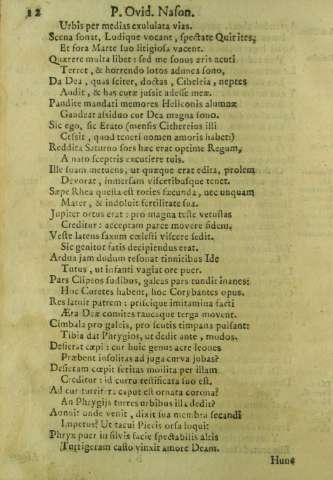 12 P. Ovid. Nason.
Urbis per medias exululata vias.
Scena sonat, Ludique vocant, spectate Quirites,
Et fora Marte suo litigiosa vacent.
Quærere multa libet: sed me sonus æris acuti
Terret, & horrendo lotos adunca sono,
Da Dea, quas sciter, doctas, Cibeleia, neptes
Audit, & has curæ jussit adesse meæ.
Pandite mandati memores Heliconis alumnæ
Gaudeat assiduo cur Dea magna sono.
Sic ego, sic Erato (mensis Cithereius illi
Cessit, quod teneri nomen amoris habet:)
Reddita Saturno sors hæc erat optime Regum,
A nato sceptris excutiere tuis.
Ille suam metuens, ut quæque erat edita, prolem
Devorat, immersam visceribusque tenet.
Sæpe Rhea questa est toties fæcunda, nec unquam
Mater, & indoluit fertilitate sua.
Jupiter ortus erat: pro magna teste vetustas
Creditur: acceptam parce movere fidem.
Veste latens saxum cœlesti viscere sedit.
Sic genitor fatis decipiendus erat.
Ardua jam dudum resonat tinnitibus Ide
Tutus, ut infanti vagiat ore puer.
Pars Clipeos sudibus, galeas pars tundit inanes:
Hoc Curetes habent, hoc Corybantes opus.
Res latuit patrem: priscique imitamina facti
Æra Deæ comites raucaque terga movent.
Cimbala pro galeis, pro scutis timpana pulsant:
Tibia dat Phrygios, ut dedit ante, modos.
Desierat cœpi: cur huic genus acre leones
Præbent insolitas ad juga curva jubas?
Desieram cœpit feritas mollita per illam
Creditur: id curru testificata suo est.
Ad cur turrifera caput est ornara corona?
An Phrygiis turres urbibus illa dedit?
Annuit unde venit, dixit sua membra secandi
Impetus? Ut tacui Pieris orsa loqui:
Phryx puer in silvis facie spectabilis altis
Turrigeram casto vinxit amore Deam.
Hunc